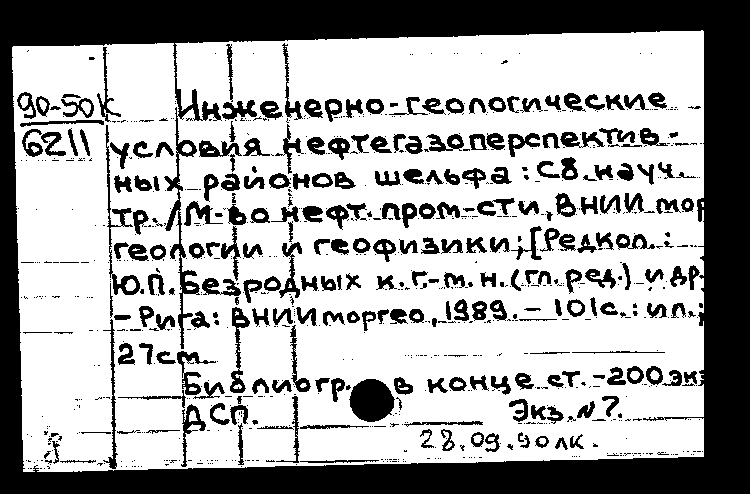 90-50к Инженерно-геологические
6211 условия нефтегазоперспектив-
ных районов шельфа: Сб. науч.
тр. / М-во нефт. пром-сти, ВНИИ мор
геологии и геофизики; [Редкол.:
Ю.П. Безродных к.г.-м.н. (гл. ред.) и др.
- Рига: ВНИИморгео, 1989. - 101с.: ил.;
27см.
Библиогр. в конце ст. - 200 экз
ДСП. Экз. N7.
28.09.90 лк.